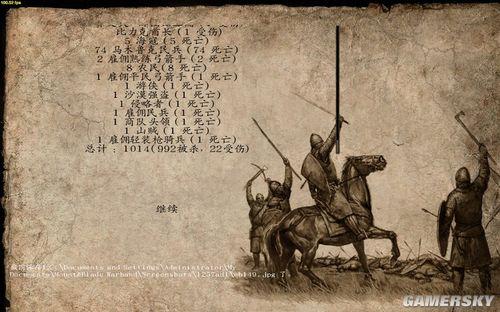 100.52 fps
比力克酋长 (1 受伤)
5 海寇 (5 死亡)
74 马木鲁克民兵 (74 死亡)
2 雇佣熟练弓箭手 (2 死亡)
8 农民 (8 死亡)
1 雇佣平民弓箭手 (1 死亡)
1 游侠 (1 死亡)
1 沙漠强盗 (1 死亡)
1 侵略者 (1 死亡)
1 雇佣民兵 (1 死亡)
1 商队头领 (1 死亡)
1 山贼 (1 死亡)
1 雇佣轻装枪骑兵 (1 死亡)
总计 : 1014(992被杀, 22受伤)
继续
C:\Documents and Settings\Administrator\My
Documents\Mount&Blade Warband\Screenshots\ 了。
GAMERSKY